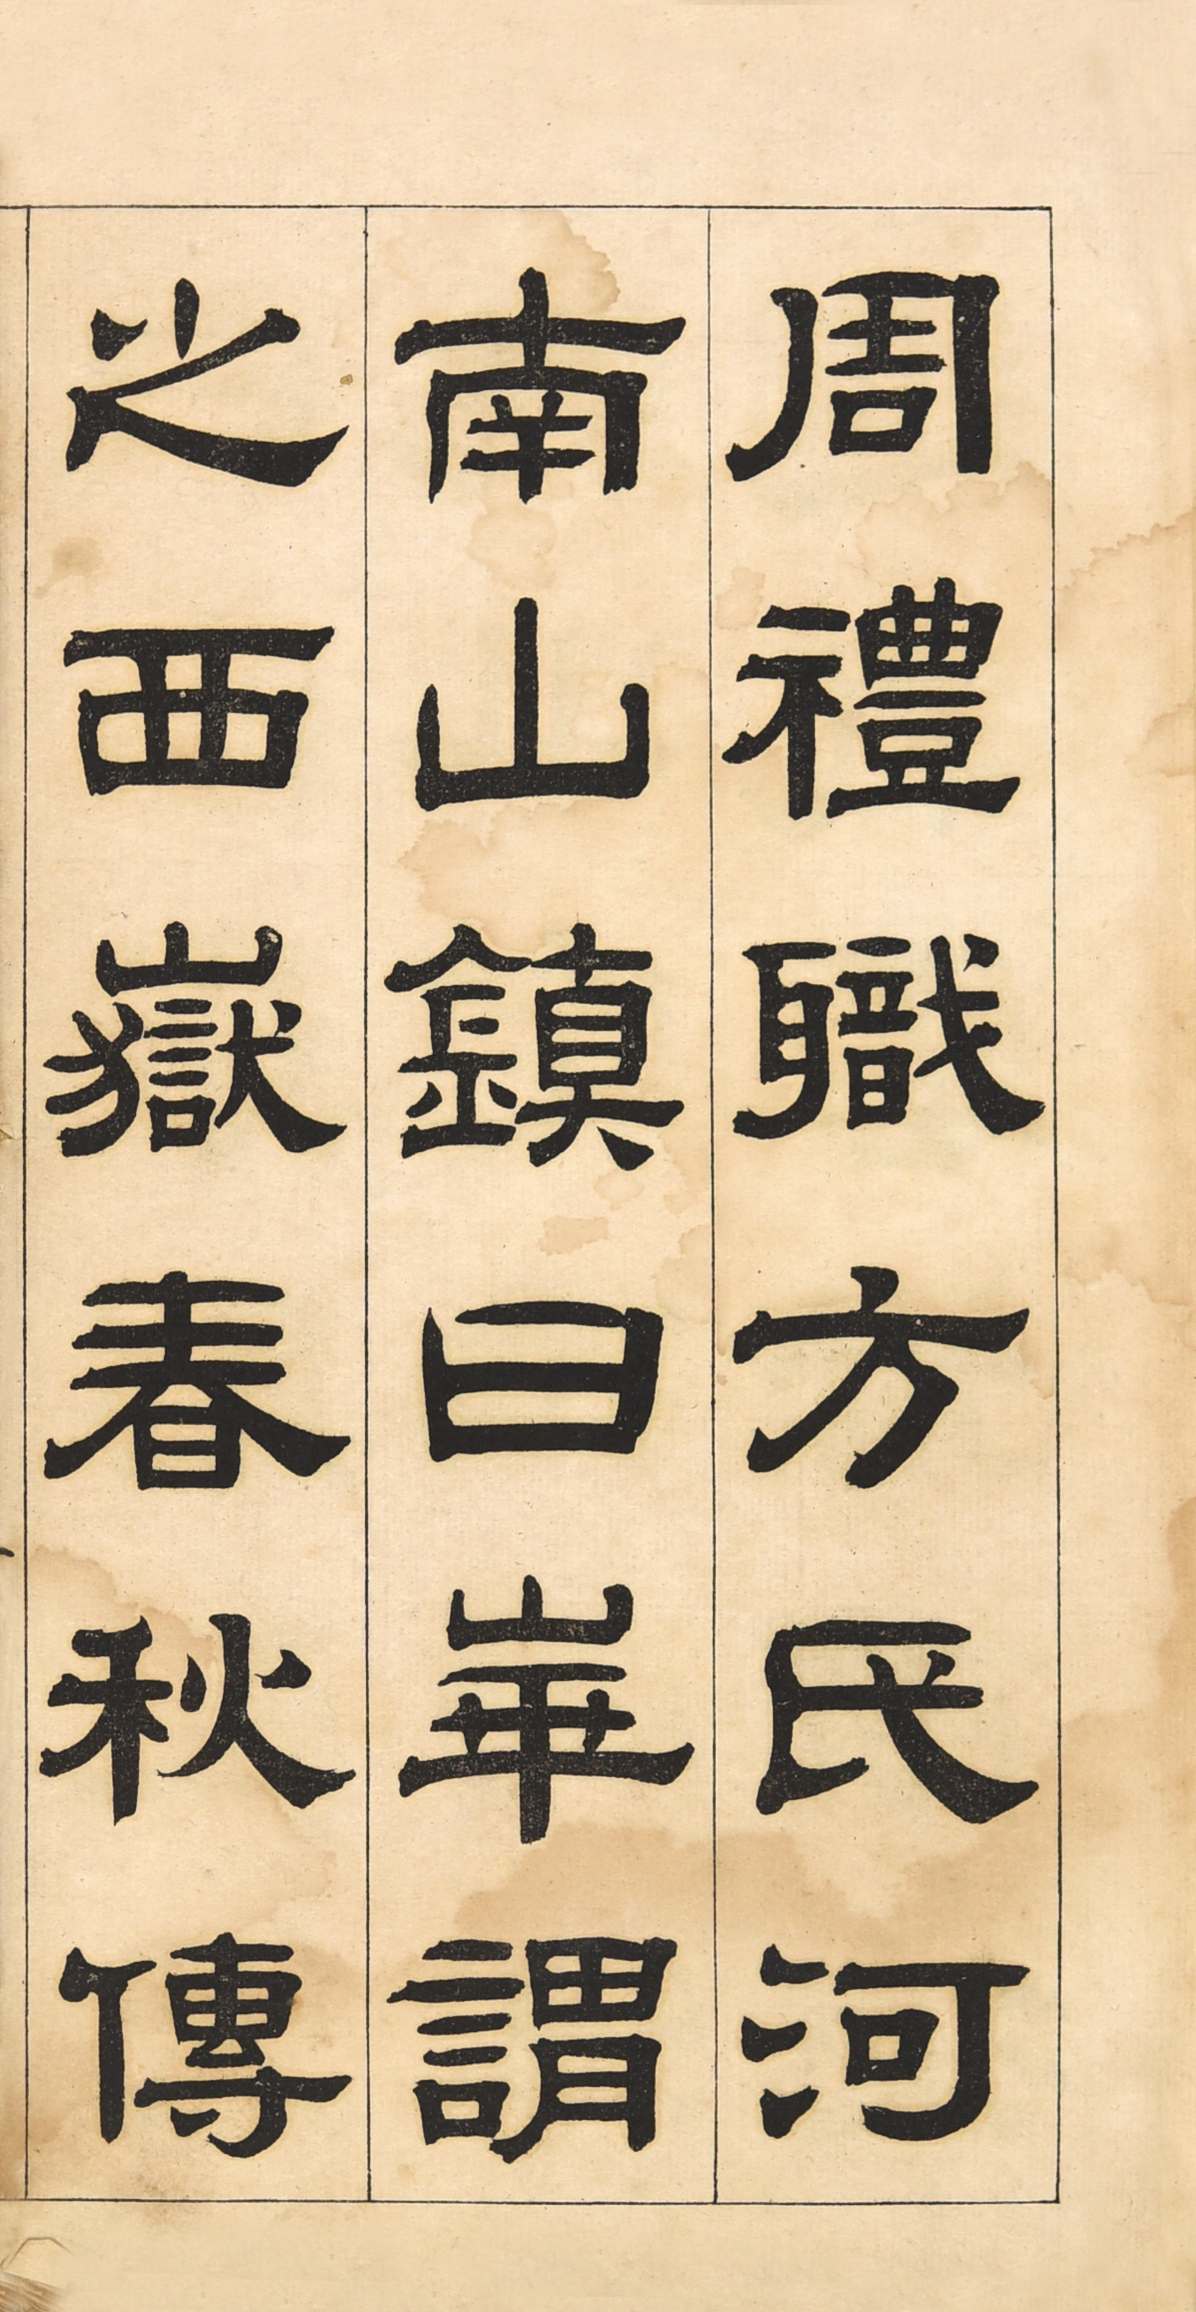 周禮職方氏河
南山鎮曰崋謂
之西嶽春秋傳